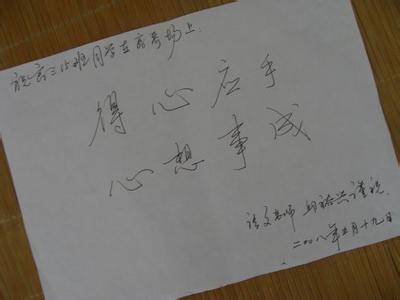 祝高三15班同学在高考场上
得心应手
心想事成
语文老师 邱裕兴谨祝
二〇〇八年五月十九日